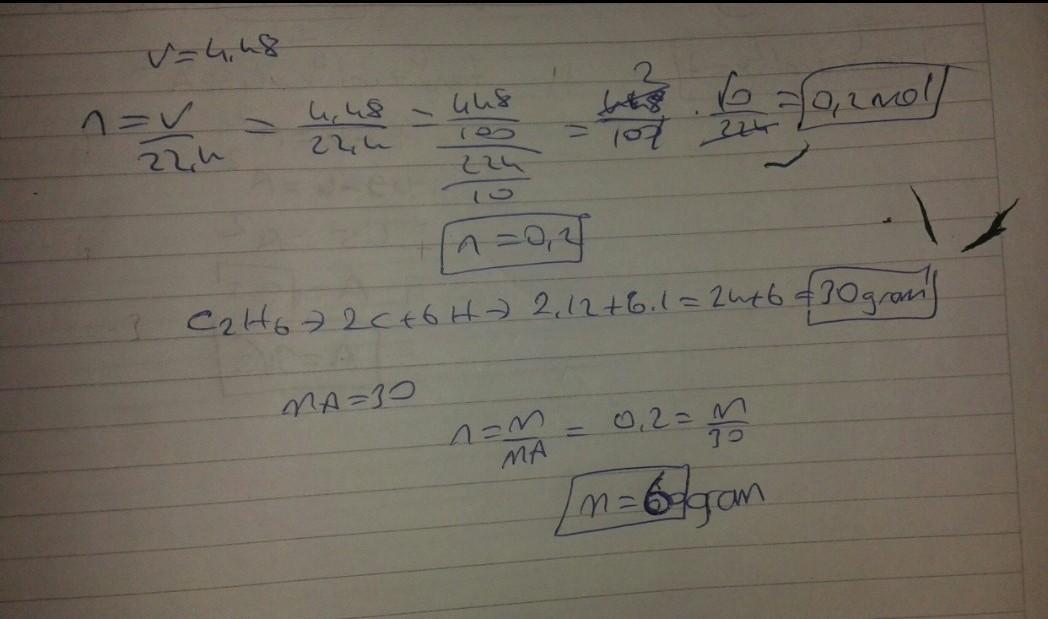 V=4,48
n = V/22,4 = 4,48/22,4 = 448/100 / 224/10 = 448/100 2 . 10/224 = 0,2 mol
n = 0,2
C2H6 → 2C+6H → 2.12+6.1 = 24+6 = 30 gram
MA=30
n = m/MA = 0,2 = m/30
m = 6 gram